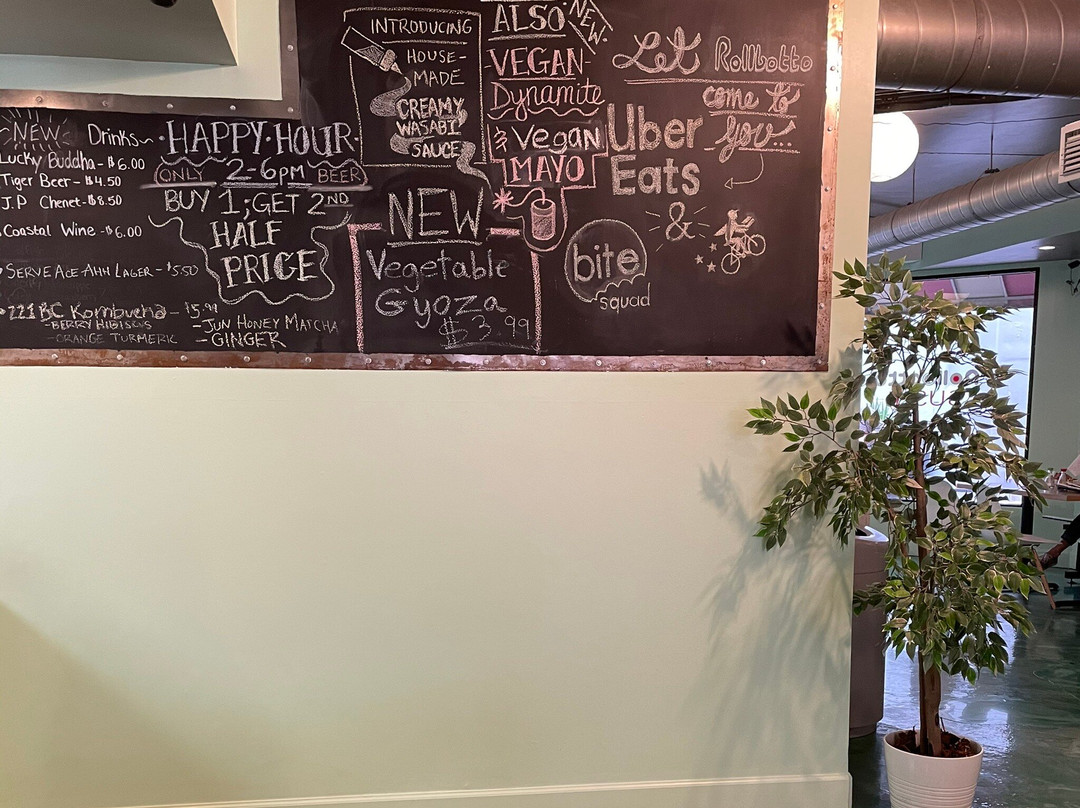 NEW Drinks~
Lucky Buddha - $6.00
Tiger Beer - $4.50
J.P Chenet - $8.50
Coastal Wine - $6.00
SERVE ACE-AHH LAGER - $5.50
221 BC Kombucha - $5.99
- BERRY HIBISCUS
- ORANGE TURMERIC
- JUN HONEY MATCHA
- GINGER
·HAPPY·HOUR·
ONLY 2-6PM BEER
BUY 1; GET 2ND
HALF
PRICE
INTRODUCING
HOUSE-
MADE
CREAMY
WASABI
SAUCE
NEW
Vegetable
Gyoza
$3.99
ALSO NEW
VEGAN
Dynamite
& Vegan
MAYO
Let Rollbotto
come to
you...
Uber
Eats
&
bite
squad